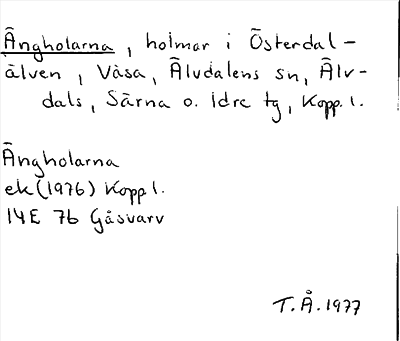 Ängholarna, holmar i Österdal-
älven, Våsa, Älvdalens sn, Älv-
dals, Särna o. Idre tg, Kopp. l.
Ängholarna
ek (1976) Kopp l.
14E 7b Gåsvarv
T. Å. 1977